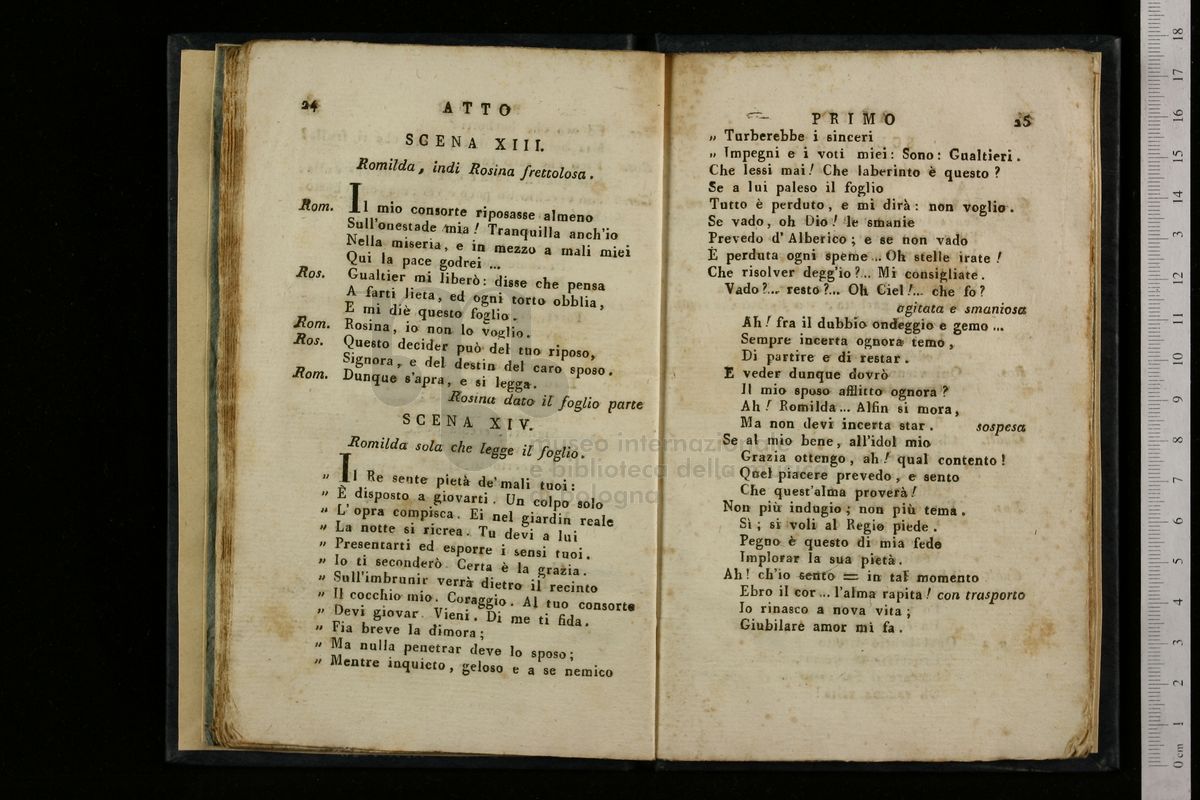 24
ATTO
SCENA XIII.
Romilda, indi Rosina frettolosa.
Rom. Il mio consorte riposasse almeno
Sull'onestade mia! Tranquilla anch'io
Nella miseria, e in mezzo a mali miei
Qui la pace godrei ...
Ros. Gualtier mi liberò: disse che pensa
A farti lieta, ed ogni torto obblia,
E mi diè questo foglio.
Rom. Rosina, io non lo voglio.
Ros. Questo decider può del tuo riposo,
Signora, e del destin del caro sposo.
Rom. Dunque s'apra, e si legga.
Rosina dato il foglio parte
SCENA XIV.
Romilda sola che legge il foglio.
" Il Re sente pietà de' mali tuoi:
" È disposto a giovarti. Un colpo solo
" L'opra compisca. Ei nel giardin reale
" La notte si ricrea. Tu devi a lui
" Presentarti ed esporre i sensi tuoi.
" Io ti seconderò. Certa è la grazia.
" Sull'imbrunir verrà dietro il recinto
" Il cocchio mio. Coraggio. Al tuo consorte
" Devi giovar. Vieni. Di me ti fida.
" Fia breve la dimora;
" Ma nulla penetrar deve lo sposo;
" Mentre inquieto, geloso e a se nemico
PRIMO
25
" Turberebbe i sinceri
" Impegni e i voti miei: Sono: Gualtieri.
Che lessi mai! Che laberinto è questo?
Se a lui paleso il foglio
Tutto è perduto, e mi dirà: non voglio.
Se vado, oh Dio! le smanie
Prevedo d'Alberico; e se non vado
È perduta ogni speme ... Oh stelle irate!
Che risolver degg'io?.. Mi consigliate.
Vado?... resto?... Oh Ciel!... che fo?
agitata e smaniosa
Ah! fra il dubbio ondeggio e gemo ...
Sempre incerta ognora temo,
Di partire e di restar.
E veder dunque dovrò
Il mio sposo afflitto ognora?
Ah! Romilda ... Alfin si mora,
Ma non devi incerta star. sospesa
Se al mio bene, all'idol mio
Grazia ottengo, ah! qual contento!
Quel piacere prevedo, e sento
Che quest'alma proverà!
Non più indugio; non più tema.
Sì; si voli al Regio piede.
Pegno è questo di mia fede
Implorar la sua pietà.
Ah! ch'io sento = in tal momento
Ebro il cor ... l'alma rapita! con trasporto
Io rinasco a nova vita;
Giubilare amor mi fa.
museo internazionale
e biblioteca della musica
di bologna
0 cm 1 2 3 4 5 6 7 8 9 10 11 12 13 14 15 16 17 18